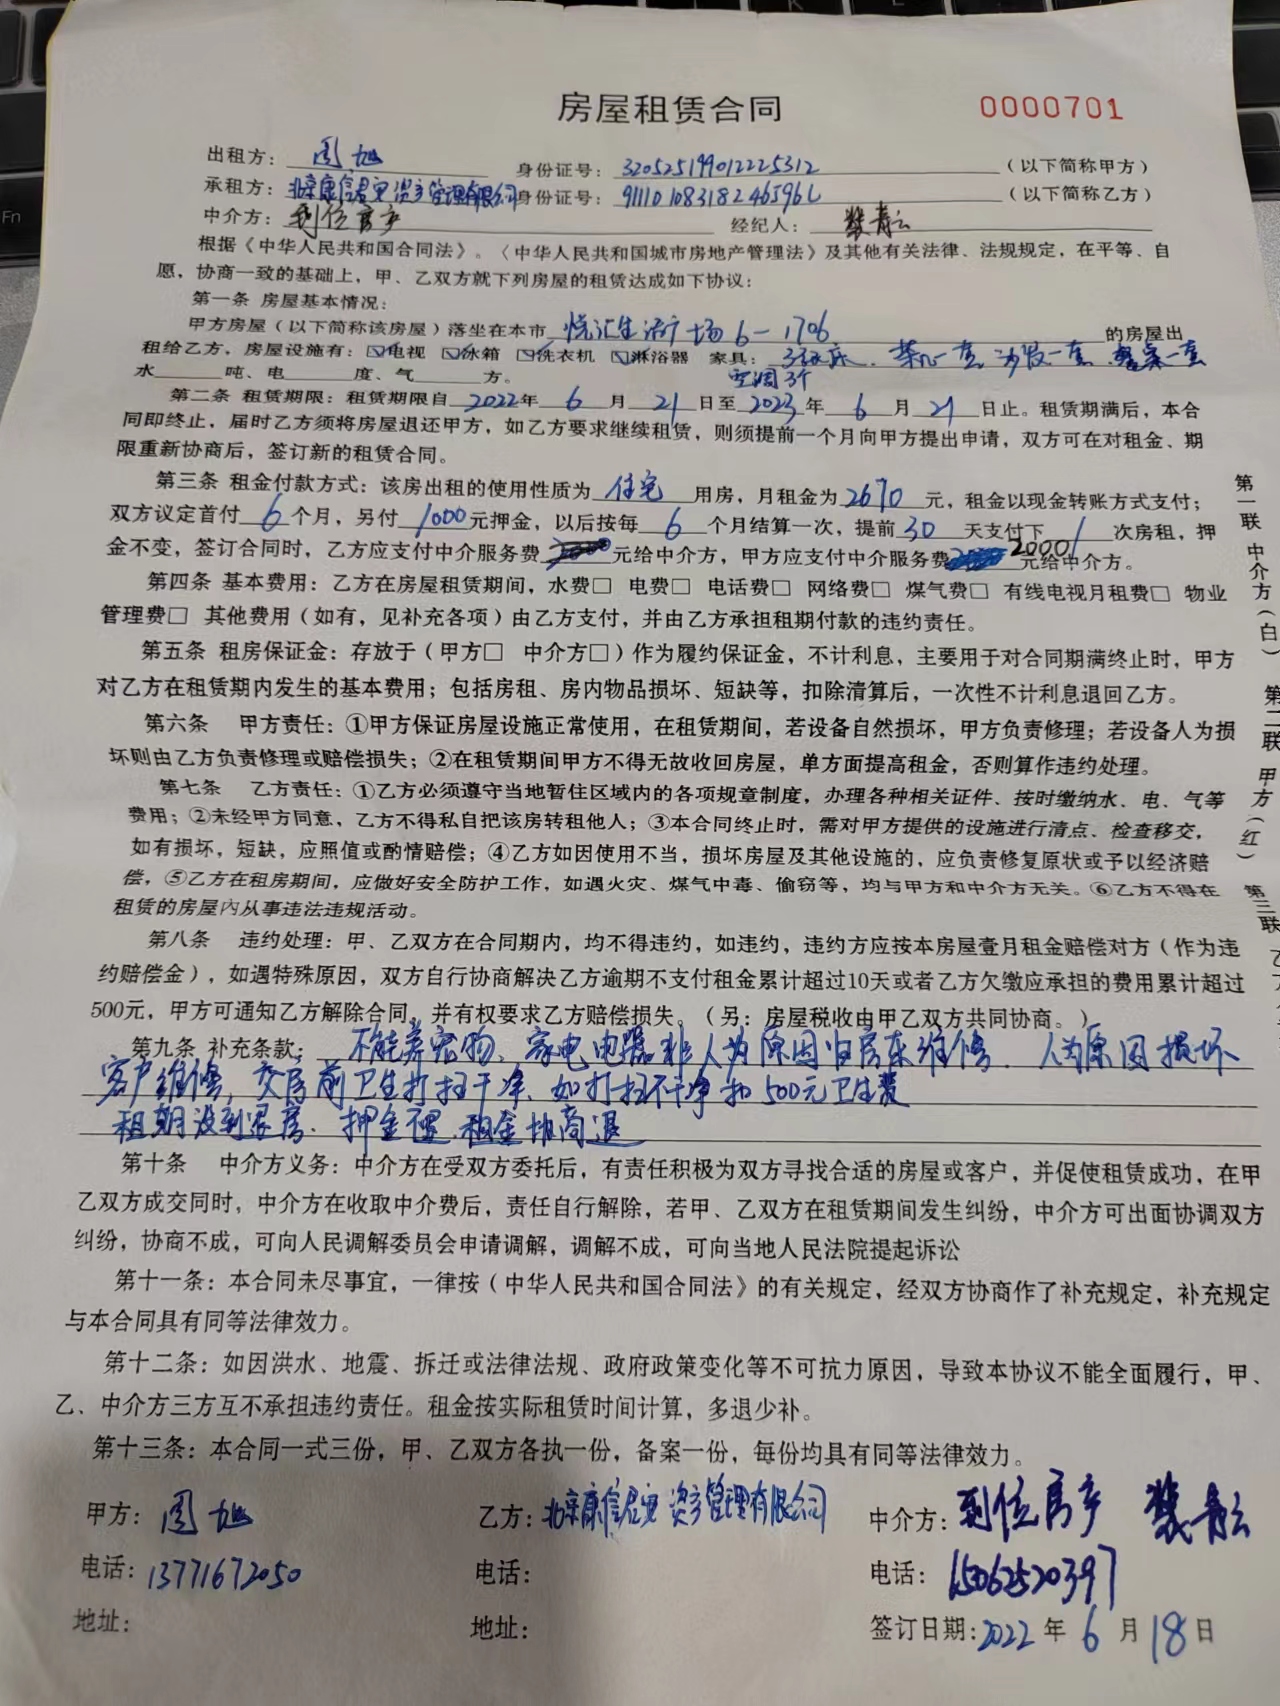 房屋租赁合同 0000701
出租方：周旭 身份证号：320525199012225312 （以下简称甲方）
承租方：北京康信君安资产管理有限公司 身份证号：91110108318246596L （以下简称乙方）
中介方：到位房产 经纪人：裴青云
根据《中华人民共和国合同法》。〈中华人民共和国城市房地产管理法》及其他有关法律、法规规定，在平等、自
愿，协商一致的基础上，甲、乙双方就下列房屋的租赁达成如下协议：
第一条 房屋基本情况：
甲方房屋（以下简称该房屋）落坐在本市 悦汇生活广场6-1706 的房屋出
租给乙方，房屋设施有：☑电视 ☑冰箱 ☑洗衣机 ☑淋浴器 家具：3张床、茶几一套、沙发一套、餐桌一套
水 吨、电 度、气 方。 空调3个
第二条 租赁期限：租赁期限自2022年6月21日至2023年6月21日止。租赁期满后，本合
同即终止，届时乙方须将房屋退还甲方，如乙方要求继续租赁，则须提前一个月向甲方提出申请，双方可在对租金、期
限重新协商后，签订新的租赁合同。
第三条 租金付款方式：该房出租的使用性质为 住宅 用房，月租金为2670元，租金以现金转账方式支付；
双方议定首付6个月，另付1000元押金，以后按每6个月结算一次，提前30天支付下1次房租，押
金不变，签订合同时，乙方应支付中介服务费 元给中介方，甲方应支付中介服务费2000元给中介方。
第四条 基本费用：乙方在房屋租赁期间，水费□ 电费□ 电话费□ 网络费□ 煤气费□ 有线电视月租费□ 物业
管理费□ 其他费用（如有，见补充各项）由乙方支付，并由乙方承担租期付款的违约责任。
第五条 租房保证金：存放于（甲方□ 中介方□）作为履约保证金，不计利息，主要用于对合同期满终止时，甲方
对乙方在租赁期内发生的基本费用；包括房租、房内物品损坏、短缺等，扣除清算后，一次性不计利息退回乙方。
第六条 甲方责任：①甲方保证房屋设施正常使用，在租赁期间，若设备自然损坏，甲方负责修理；若设备人为损
坏则由乙方负责修理或赔偿损失；②在租赁期间甲方不得无故收回房屋，单方面提高租金，否则算作违约处理。
第七条 乙方责任：①乙方必须遵守当地暂住区域内的各项规章制度，办理各种相关证件、按时缴纳水、电、气等
费用；②未经甲方同意，乙方不得私自把该房转租他人；③本合同终止时，需对甲方提供的设施进行清点、检查移交，
如有损坏，短缺，应照值或酌情赔偿；④乙方如因使用不当，损坏房屋及其他设施的，应负责修复原状或予以经济赔
偿，⑤乙方在租房期间，应做好安全防护工作，如遇火灾、煤气中毒、偷窃等，均与甲方和中介方无关。⑥乙方不得在
租赁的房屋内从事违法违规活动。
第八条 违约处理：甲、乙双方在合同期内，均不得违约，如违约，违约方应按本房屋壹月租金赔偿对方（作为违
约赔偿金），如遇特殊原因，双方自行协商解决乙方逾期不支付租金累计超过10天或者乙方欠缴应承担的费用累计超过
500元，甲方可通知乙方解除合同，并有权要求乙方赔偿损失。（另：房屋税收由甲乙双方共同协商。）
第九条 补充条款：不能养宠物、家电电器非人为原因归房东维修．人为原因损坏
客户维修，交房前卫生打扫干净、如打扫不干净扣500元卫生费
租期没到退房．押金不退．租金协商退
第十条 中介方义务：中介方在受双方委托后，有责任积极为双方寻找合适的房屋或客户，并促使租赁成功，在甲
乙双方成交同时，中介方在收取中介费后，责任自行解除，若甲、乙双方在租赁期间发生纠纷，中介方可出面协调双方
纠纷，协商不成，可向人民调解委员会申请调解，调解不成，可向当地人民法院提起诉讼
第十一条：本合同未尽事宜，一律按（中华人民共和国合同法》的有关规定，经双方协商作了补充规定，补充规定
与本合同具有同等法律效力。
第十二条：如因洪水、地震、拆迁或法律法规、政府政策变化等不可抗力原因，导致本协议不能全面履行，甲、
乙、中介方三方互不承担违约责任。租金按实际租赁时间计算，多退少补。
第十三条：本合同一式三份，甲、乙双方各执一份，备案一份，每份均具有同等法律效力。
甲方：周旭 乙方：北京康信君安资产管理有限公司 中介方：到位房产 裴青云
电话：13771672050 电话： 电话：15062520397
地址： 地址： 签订日期：2022年6月18日
第一联 中介方（白） 第二联 甲方（红） 第三联 乙方
Fn